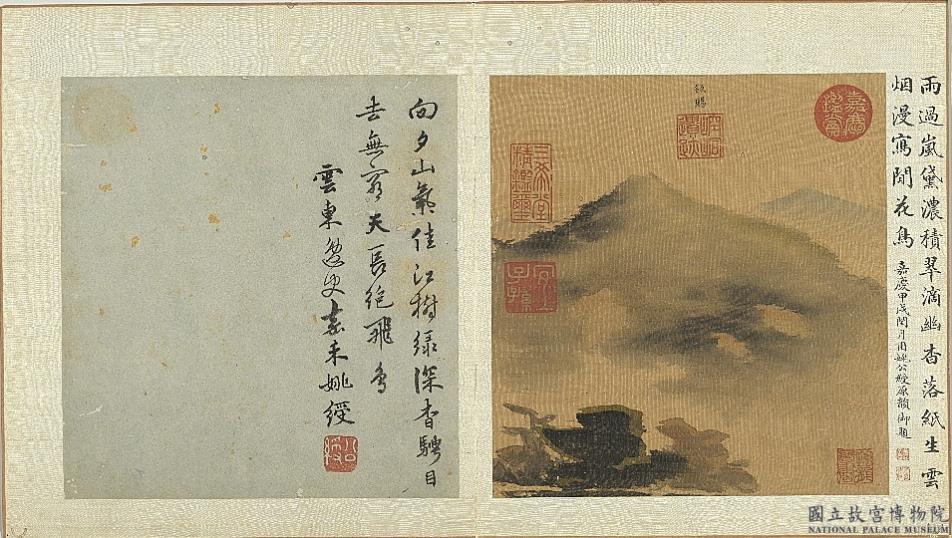 雨過嵐黛濃積翠滴幽杳落紙生雲
烟漫寫閒花鳥
嘉慶甲戌閏月用姚公綬原韻御題
嘉慶鑑賞
欽賜
三希堂精鑑璽
宜子孫
向夕山氣佳江樹綠深杳騁目
去無窮天長絕飛鳥
雲東逸史嘉禾姚綬
公綬
國立故宮博物院
NATIONAL PALACE MUSEUM